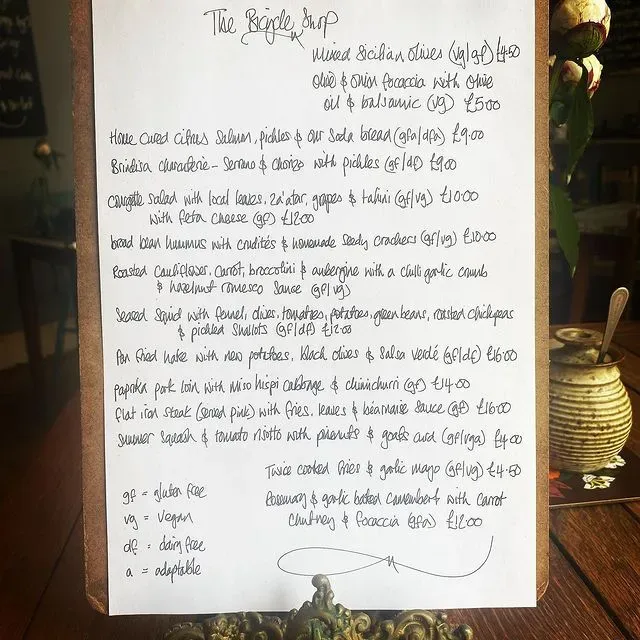 The Bicycle Shop
Mixed Sicilian Olives (vg/gf) £4.50
olive & onion focaccia with olive
oil & balsamic (vg) £5.00
Home cured citrus salmon, pickles & our soda bread (gfa/dfa) £9.00
Brindisa charcuterie - Serrano & chorizo with pickles (gf/df) £9.00
Courgette salad with local leaves, za'atar, grapes & tahini (gf/vg) £10.00
with feta cheese (gf) £12.00
broad bean hummus with crudités & homemade seedy crackers (gf/vg) £10.00
Roasted cauliflower, carrot, broccolini & aubergine with a chilli garlic crumb
& hazelnut romesco sauce (gf/vg)
Seared squid with fennel, olives, tomatoes, potatoes, green beans, roasted chickpeas
& pickled shallots (gf/df) £12.00
Pan fried hake with new potatoes, black olives & salsa verdé (gf/df) £16.00
paprika pork loin with miso hispi cabbage & chimichurri (gf) £14.00
flat iron steak (served pink) with fries, leaves & béarnaise sauce (gf) £16.00
Summer squash & tomato risotto with pinenuts & goats curd (gf/vga)
Twice cooked fries & garlic mayo (gf/vg) £4.50
Rosemary & garlic baked camembert with carrot
chutney & focaccia (gfa) £12.00
gf = gluten free
vg = vegan
df = dairy free
a = adaptable